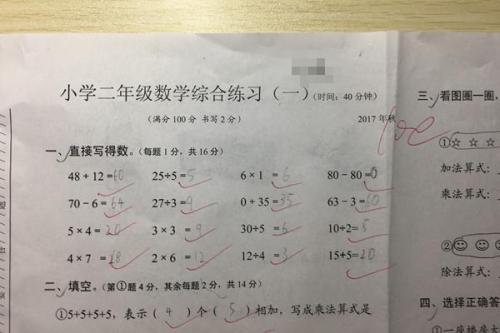 小学二年级数学综合练习（一）（时间：40 分钟）
（满分 100 分 书写 2 分） 2017 年秋
100
一、直接写得数。（每题 1 分，共 16 分）
48 + 12 =60 25÷5 =5 6 × 1 =6 80 − 80 =0
70 − 6 =64 27÷3 =9 0 + 35 =35 63 − 3 =60
5 × 4 =20 3 × 3 =9 30÷5 =6 10÷2 =5
4 × 7 =28 2 × 6 =12 12÷4 =3 15+5 =20
二、填空。（第①题 4 分，其余每题 2 分，共 14 分）
①5+5+5+5，表示（ 4 ）个（ 5 ）相加，写成乘法算式是
三、看图圈一圈，
①☆ ☆ ☆
加法算式：
乘法算式：
②
除法算式：
四、选择正确答